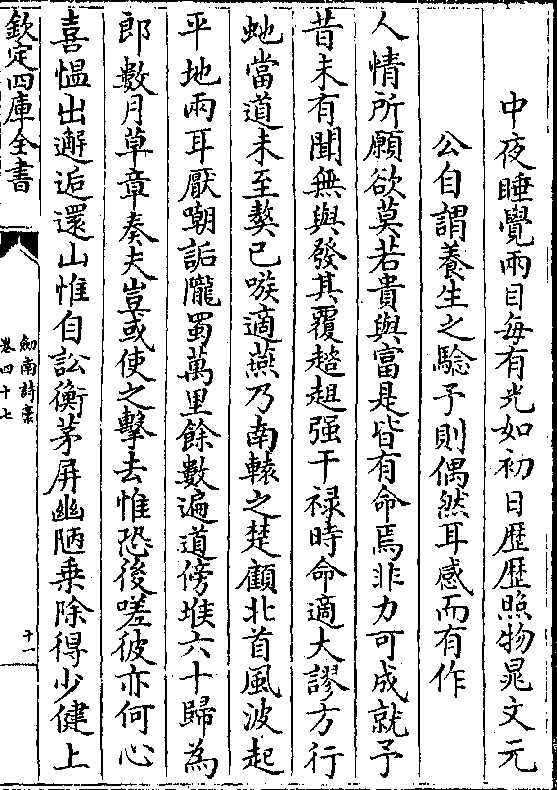 中夜睡覺兩目每有光如初日歴歴照物晁文元
公自謂養生之騐予則偶然耳感而有作
人情所願欲莫若貴與富是皆有命焉非力可成就予
昔未有聞無與發其覆趦趄强干禄時命適大謬方行
虵當道未至獒已嗾適燕乃南轅之楚顧北首風波起
平地兩耳厭嘲詬隴蜀萬里餘數遍道傍堠六十歸為
郎數月草章奏夫豈或使之擊去惟恐後嗟彼亦何心
喜愠出邂逅還山惟自訟衡茅屏幽陋乗除得少健上
欽定四庫全書
劎南詩稾
卷四十七
十一